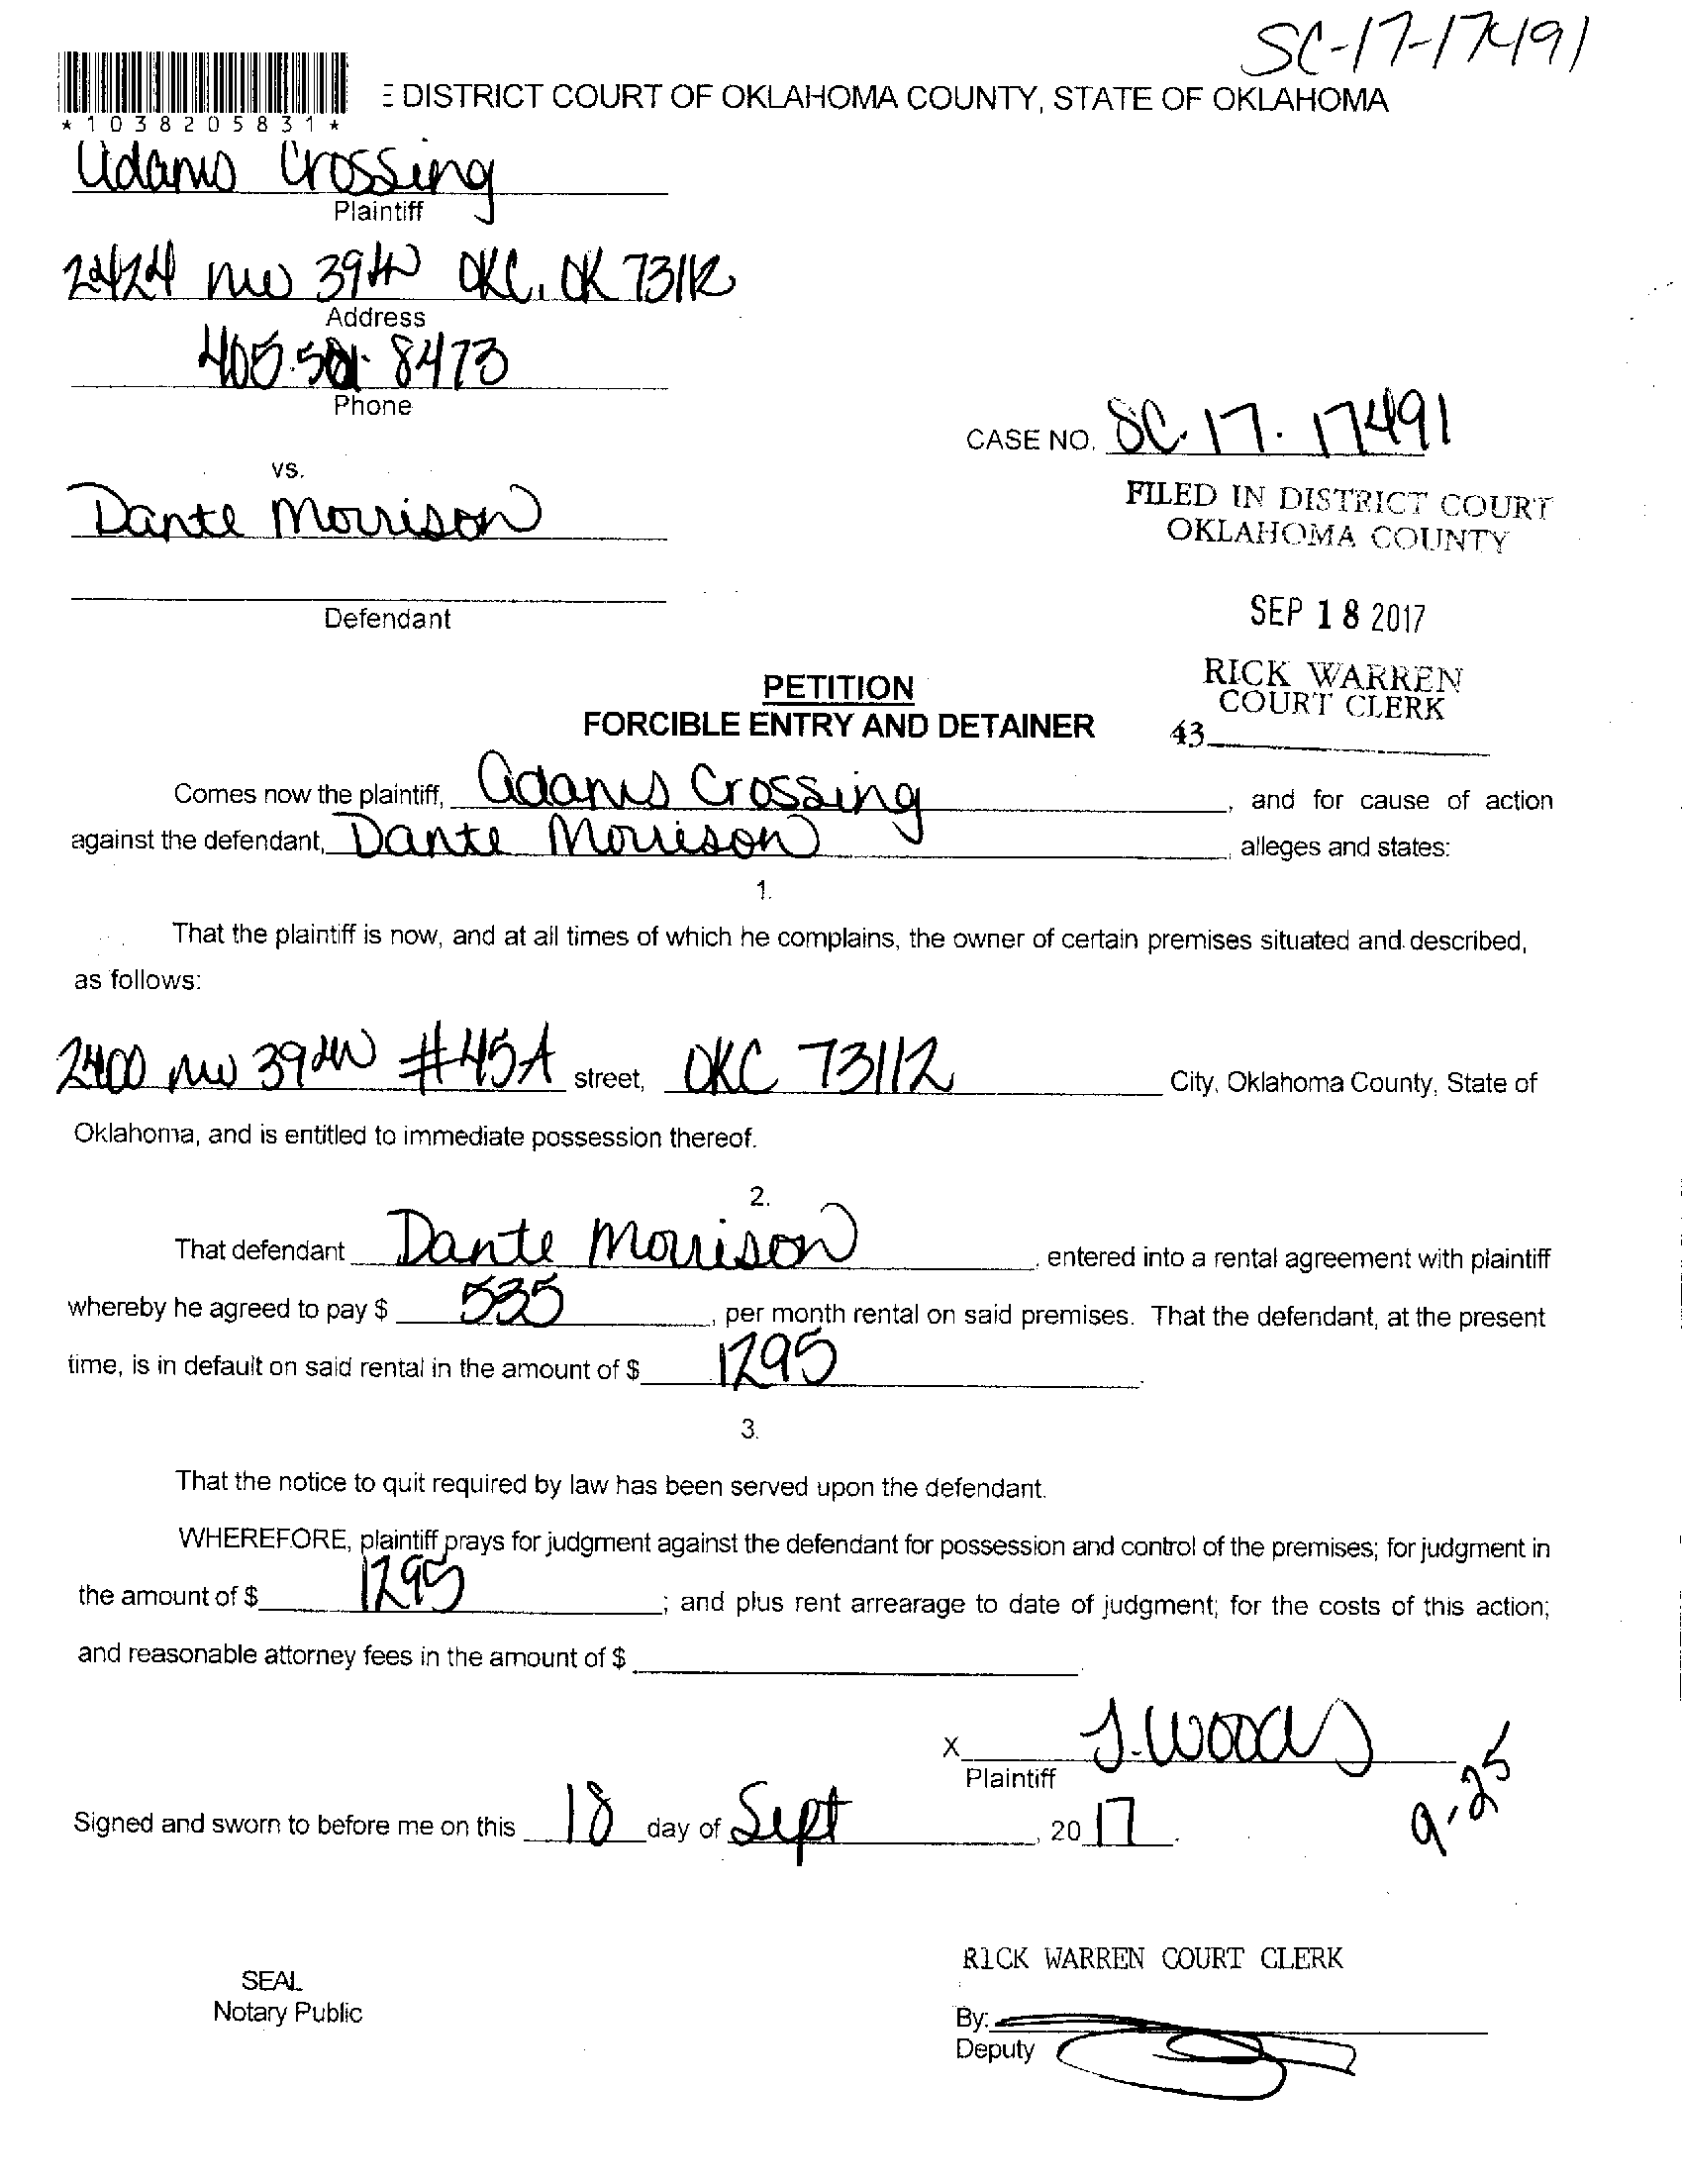 SC-17-17491
DISTRICT COURT OF OKLAHOMA COUNTY, STATE OF OKLAHOMA
*1038205831*
Adams Crossing
Plaintiff
2424 NW 39th OKC, OK 73112
Address
405. 8473
Phone
CASE NO. SC. 17. 17491
vs.
FILED IN DISTRICT COURT
OKLAHOMA COUNTY
Dante Morrison
Defendant
SEP 18 2017
RICK WARREN
COURT CLERK
43
PETITION
FORCIBLE ENTRY AND DETAINER
Comes now the plaintiff, Adams Crossing, and for cause of action
against the defendant, Dante Morrison, alleges and states:
1.
That the plaintiff is now, and at all times of which he complains, the owner of certain premises situated and described,
as follows:
2400 NW 39th #45A street, OKC 73112 City, Oklahoma County, State of
Oklahoma, and is entitled to immediate possession thereof.
2.
That defendant Dante Morrison, entered into a rental agreement with plaintiff
whereby he agreed to pay $ 535, per month rental on said premises. That the defendant, at the present
time, is in default on said rental in the amount of $ 1295.
3.
That the notice to quit required by law has been served upon the defendant.
WHEREFORE, plaintiff prays for judgment against the defendant for possession and control of the premises; for judgment in
the amount of $ 1295; and plus rent arrearage to date of judgment; for the costs of this action;
and reasonable attorney fees in the amount of $
X J. Woods
Plaintiff
9-25
Signed and sworn to before me on this 18 day of Sept, 2017.
RICK WARREN COURT CLERK
SEAL
Notary Public
By:
Deputy